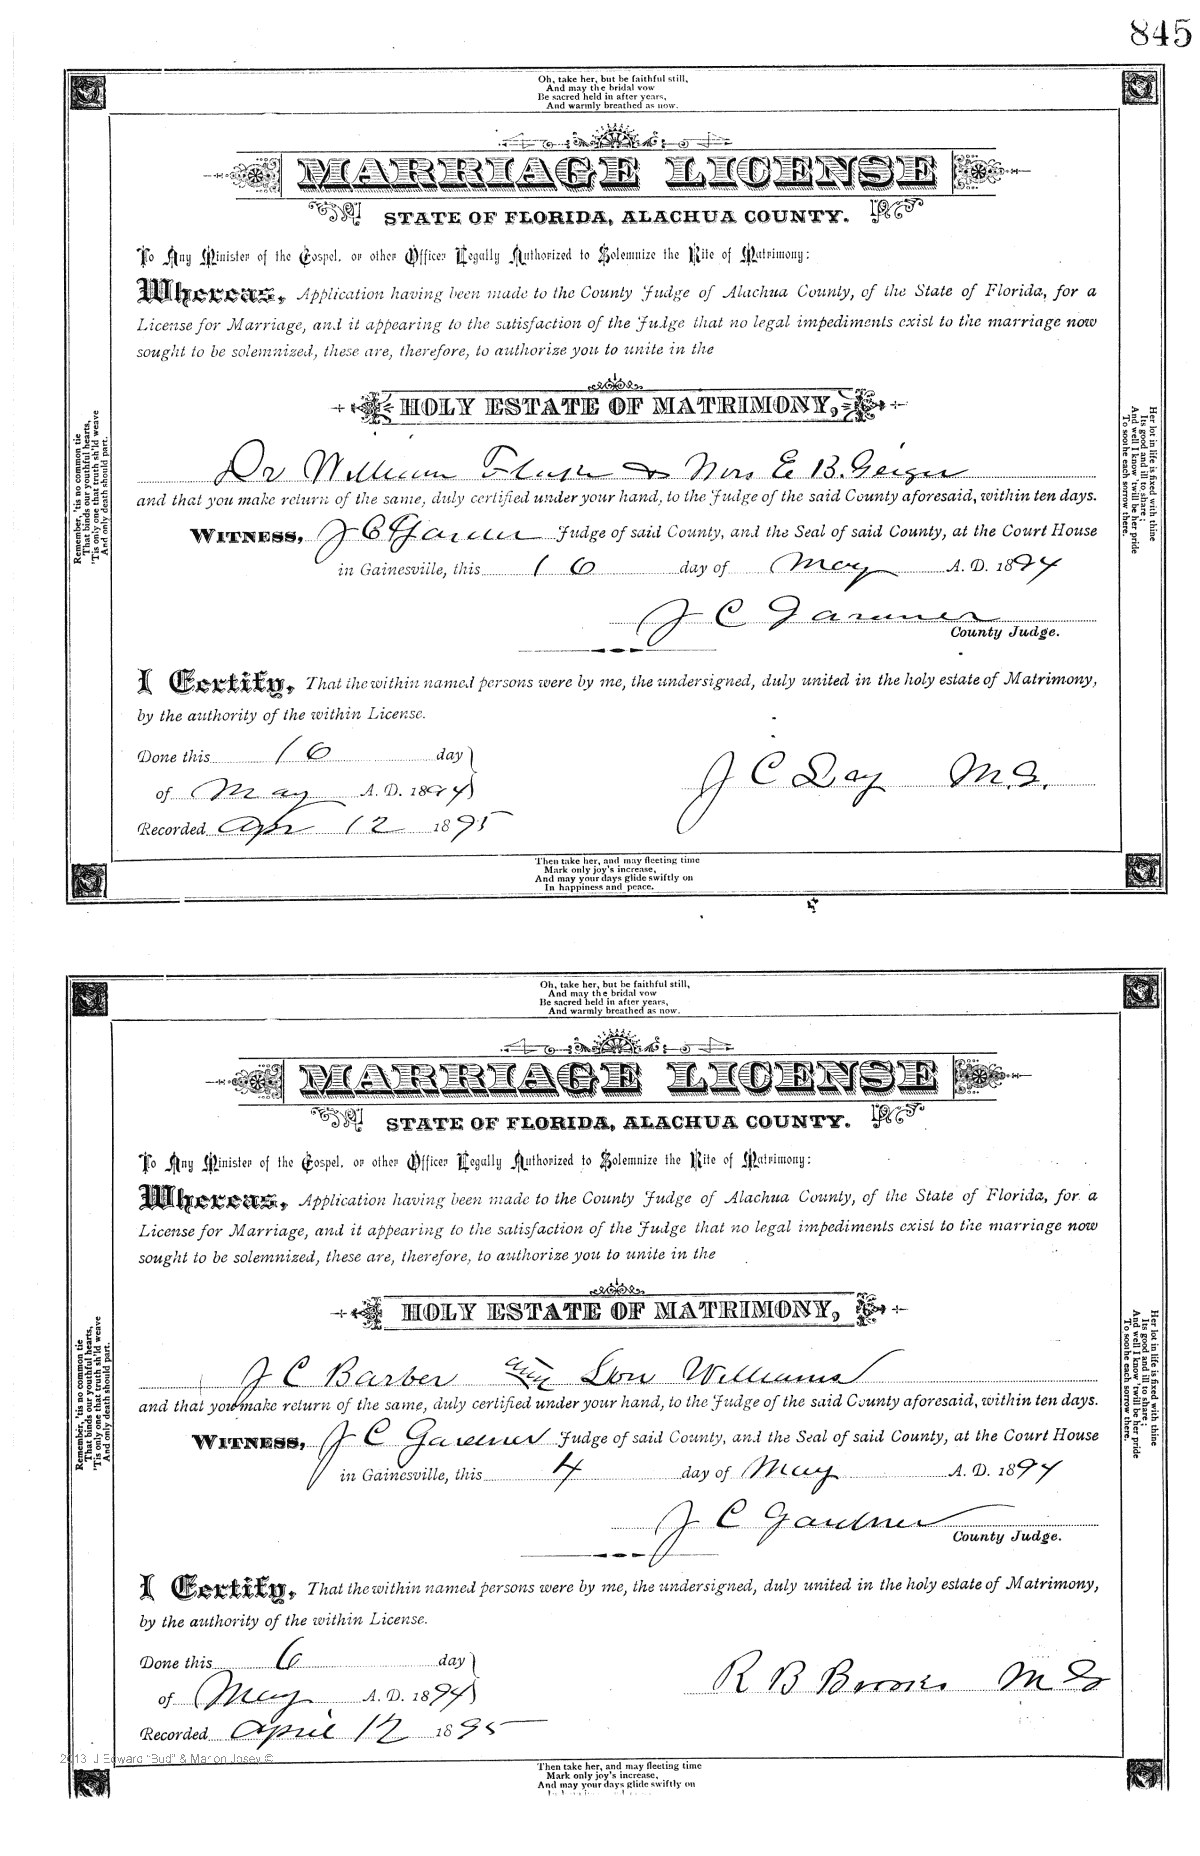 845
Oh, take her, but be faithful still,
And may the bridal vow
Be sacred held in after years,
And warmly breathed as now.
MARRIAGE LICENSE
STATE OF FLORIDA, ALACHUA COUNTY.
To Any Minister of the Gospel, or other Officer Legally Authorized to Solemnize the Rite of Matrimony:
Whereas, Application having been made to the County Judge of Alachua County, of the State of Florida, for a
License for Marriage, and it appearing to the satisfaction of the Judge that no legal impediments exist to the marriage now
sought to be solemnized, these are, therefore, to authorize you to unite in the
HOLY ESTATE OF MATRIMONY,
Dr William & Mrs E B. Geiger
and that you make return of the same, duly certified under your hand, to the Judge of the said County aforesaid, within ten days.
WITNESS, J C Gardner Judge of said County, and the Seal of said County, at the Court House
in Gainesville, this 16 day of May A. D. 1894
J C Gardner
County Judge.
I Certify, That the within named persons were by me, the undersigned, duly united in the holy estate of Matrimony,
by the authority of the within License.
Done this 16 day
of May A. D. 1894
J C Day M.G.
Recorded Apr 12 1895
Remember, 'tis no common tie
That binds our youthful hearts,
'Tis only one that truth sh'ld weave
And only death should part.
Her lot in life is fixed with thine
Its good and ill to share;
And well I know 'twill be her pride
To soothe each sorrow there.
Then take her, and may fleeting time
Mark only joy's increase,
And may your days glide swiftly on
In happiness and peace.
Oh, take her, but be faithful still,
And may the bridal vow
Be sacred held in after years,
And warmly breathed as now.
MARRIAGE LICENSE
STATE OF FLORIDA, ALACHUA COUNTY.
To Any Minister of the Gospel, or other Officer Legally Authorized to Solemnize the Rite of Matrimony:
Whereas, Application having been made to the County Judge of Alachua County, of the State of Florida, for a
License for Marriage, and it appearing to the satisfaction of the Judge that no legal impediments exist to the marriage now
sought to be solemnized, these are, therefore, to authorize you to unite in the
HOLY ESTATE OF MATRIMONY,
J C Barber and Lou Williams
and that you make return of the same, duly certified under your hand, to the Judge of the said County aforesaid, within ten days.
WITNESS, J C Gardner Judge of said County, and the Seal of said County, at the Court House
in Gainesville, this 4 day of May A. D. 1894
J C Gardner
County Judge.
I Certify, That the within named persons were by me, the undersigned, duly united in the holy estate of Matrimony,
by the authority of the within License.
Done this 6 day
of May A. D. 1894
R B Brooks M G
Recorded April 12 1895
Remember, 'tis no common tie
That binds our youthful hearts,
'Tis only one that truth sh'ld weave
And only death should part.
Her lot in life is fixed with thine
Its good and ill to share;
And well I know 'twill be her pride
To soothe each sorrow there.
2013 J Edward "Bud" & Marion Josey ©
Then take her, and may fleeting time
Mark only joy's increase,
And may your days glide swiftly on